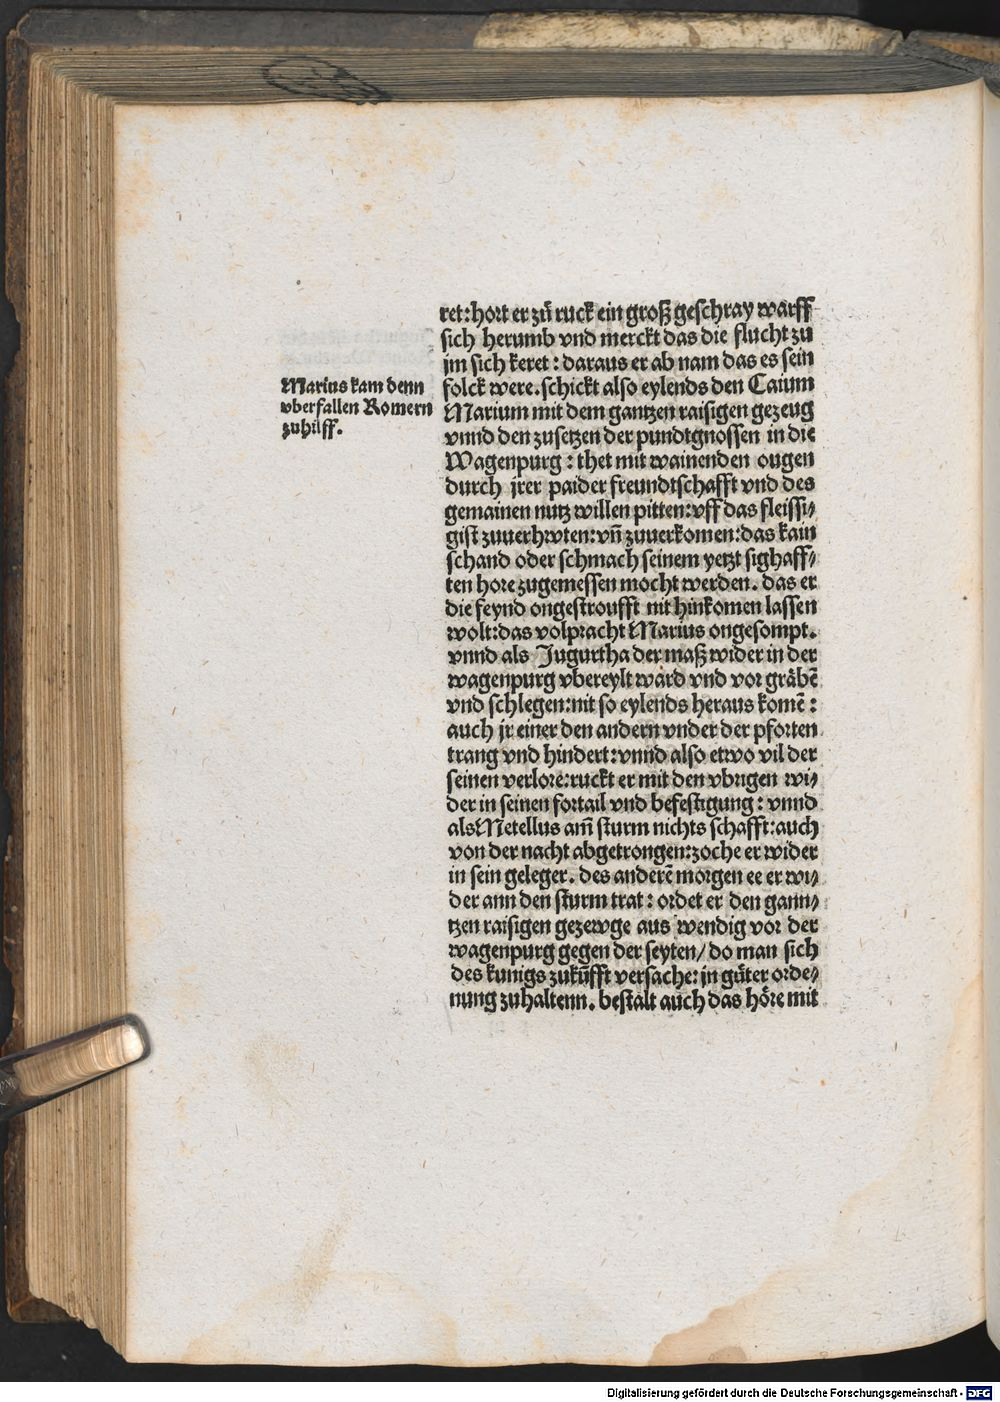 Marius kam denn
vberfallen Romern
zuhilff.
ret: hort er zů ruck ein groß geschray warff
sich herumb vnd merckt das die flucht zu
jm sich keret: daraus er ab nam das es sein
folck were. schickt also eylends den Caium
Marium mit dem gantzen raisigen gezeug
vnnd den zusetzen der pundtgnossen in die
Wagenpurg: thet mit wainenden ougen
durch jrer paider freundtschafft vnd des
gemainen nutz willen pitten: vff das fleissi⸗
gist zuuerhwten: vn̄ zuuerkomen: das kain
schand oder schmach seinem yetzt sighaff⸗
ten hore zugemessen mocht werden. das er
die feynd ongestroufft nit hinkomen lassen
wolt: das volpracht Marius ongesompt.
vnnd als Jugurtha der maß wider in der
wagenpurg vbereylt ward vnd vor gräbē
vnd schlegen: nit so eylends heraus komē:
auch jr einer den andern vnder der pforten
trang vnd hindert: vnnd also etwo vil der
seinen verlore: ruckt er mit den vbrigen wi⸗
der in seinen fortail vnd befestigung: vnnd
als Metellus am̄ sturm nichts schafft: auch
von der nacht abgetrongen: zoche er wider
in sein geleger. des anderē morgen ee er wi⸗
der ann den sturm trat: ordet er den gann⸗
tzen raisigen gezewge aus wendig vor der
wagenpurg gegen der seyten/ do man sich
des kunigs zukūfft versache: jn gůter orde⸗
nung zuhaltenn. bestalt auch das höre mit
Digitalisierung gefördert durch die Deutsche Forschungsgemeinschaft - DFG